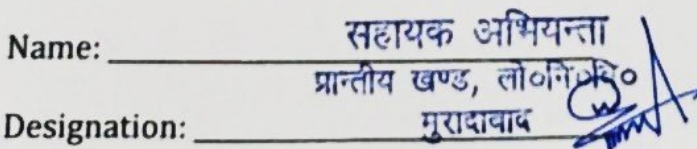 Name: सहायक अभियन्ता
प्रान्तीय खण्ड, लो०नि०वि०
Designation: मुरादाबाद